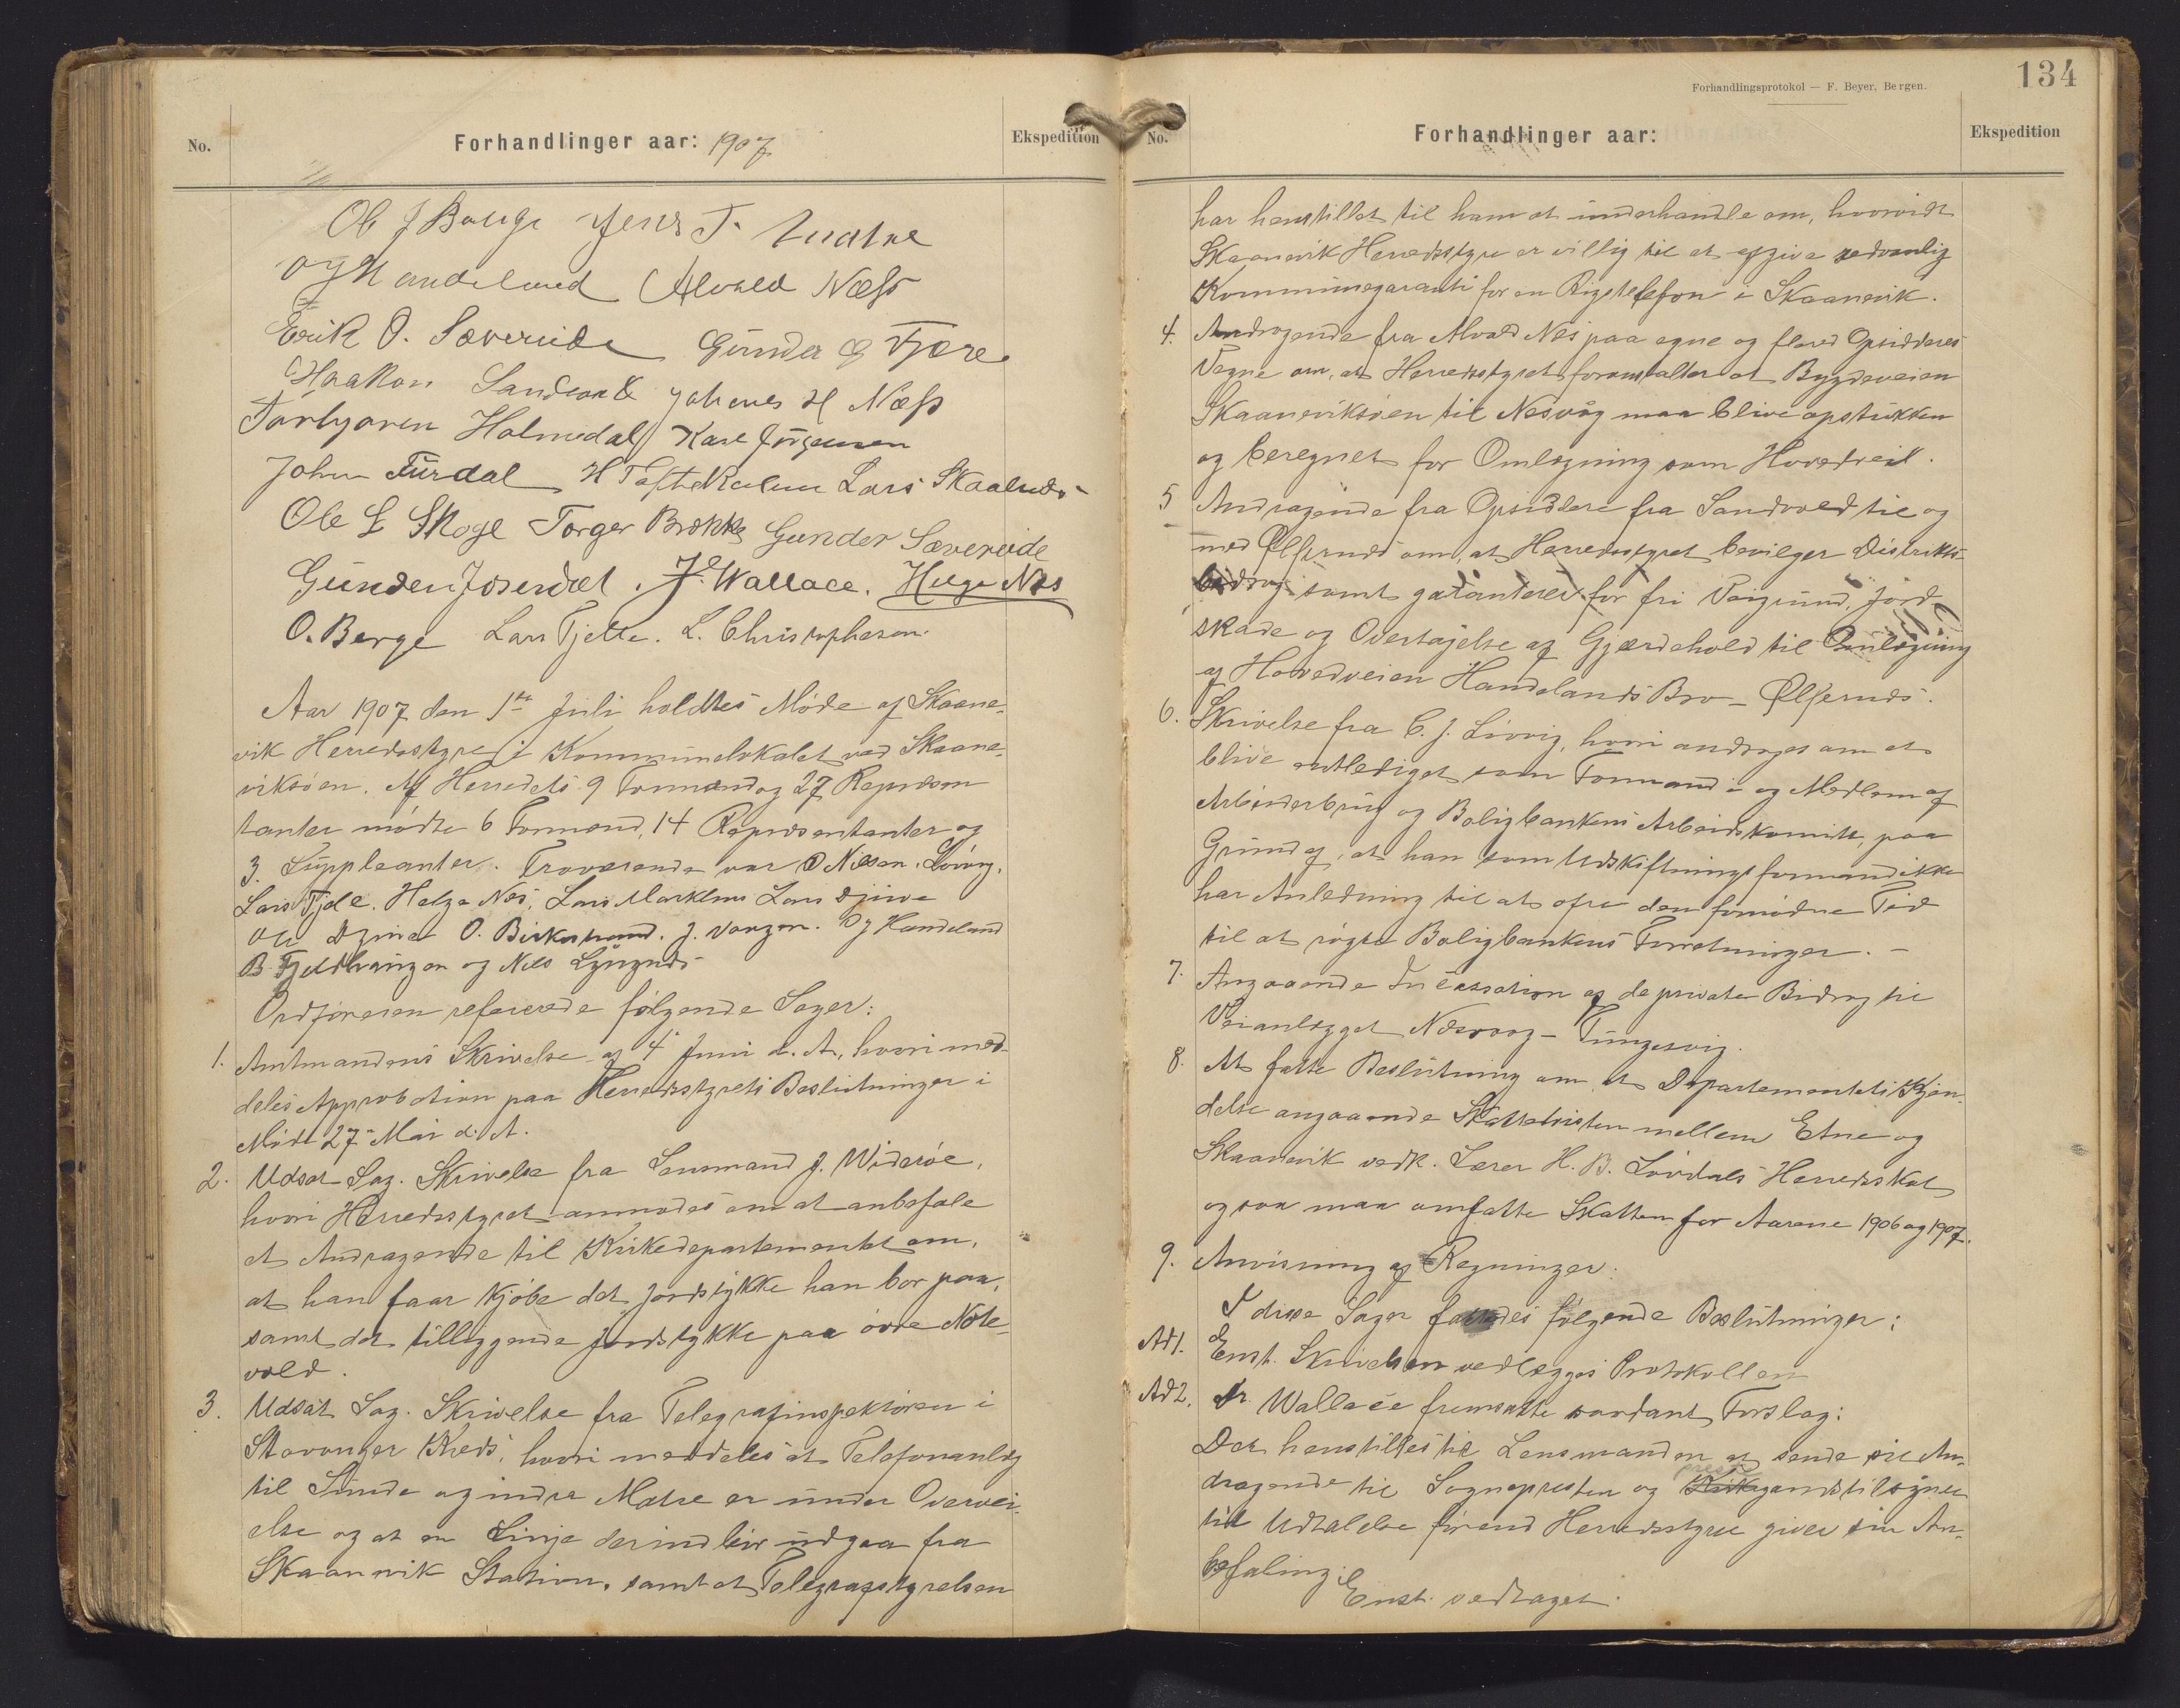 No.
Forhandlinger aar: 1907
Ekspedition
Ole J Bauge Jens T.
O J Handeland Alvald Næss
Erik O. Sævereide Gunder G Fjære
Haakon Sandvold Johannes H Næss
Torbjørn Holmedal Karl Jørgensen
John Furdal H Lars Skaalnes
Ole L Skoge Torger Brekke Gunder Sævereide
Gunder Josendal. J. Wallace. Helge Nes
O. Berge Lars Tjelle. L. Christophersen.
Aar 1907 den 1ste Juli holdtes Møde af Skaane-
vik Herredsstyre i Kommunelokalet ved Skaane-
viksøen. Af Herredets 9 Formænd og 27 Repræsen
tanter mødte 6 Formænd, 14 Repræsentanter og
3. Suppleanter. Fraværende var O Nilsen. Løvvig.
Lars Tjele. Helge Nes, Lars Marklens Lars Djuve
Ole O. Birkestrand. J. Vangen. O J Handeland
B. Fjeldhaugen og Nils Lyngnes
Ordføreren refererede følgende Sager:
1. Amtmandens Skrivelse af 4 Juni d. A., hvori med-
deles Approbation paa Herredsstyrets Beslutninger i
Møde 27 Mai d. A.
2. Udsat Sag. Skrivelse fra Lensmand J. Widerøe,
hvori Herredsstyret anmodes om at anbefale
et Andragende til Kirkedepartementet om,
at han faar kjøbe det Jordstykke han bor paa,
samt det tilliggende Jordstykke paa øvre Note-
vold.
3. Udsat Sag. Skrivelse fra Telegrafinspektøren i
Stavanger Kreds, hvori meddeles at Telefonanlæg
til Sunde og indre Matre er under Overvei-
else og at en Linje derind bør udgaa fra
Skaanevik Station, samt at Telegrafstyrelsen
Forhandlingsprotokol — F. Beyer, Bergen.
134
No.
Forhandlinger aar:
Ekspedition
har henstillet til ham at underhandle om, hvorvidt
Skaanevik Herredsstyre er villig til at afgive sedvanlig
Kommunegaranti for en Rigstelefon i Skaanevik.
4. Andragende fra Alvald Nes paa egne og flere Opsidderes
Vegne om, at Herredsstyret foranstalter at Bygdeveien
Skaaneviksøen til Nesvåg maa blive opstukken
og beregnet for Omlægning som Hovedvei.
5 Andragende fra Opsiddere fra Sandvold til og
med Ølfernes om, at Herredsstyret bevilger Distrikts-
bidrag samt garanterer for fri Veigrund, Jord-
skade og Overtagelse af Gjærdehold til Omlægning
af Hovedveien Handelands Bro - Ølfernes.
6. Skrivelse fra C. J. Løvvig, hvori andrages om at
blive entlediget som Formand i og Medlem af
Arbeiderbrug og Boligbankens Arbeidskomite, paa
Grund af, at han som Udskiftningsformand ikke
har Anledning til at ofre den fornødne Tid
til at røgte Boligbankens Forretninger. -
7. Angaaende Incassation af de private Bidrag til
Veianlægget Nesvaag - Tungesvig.
8. At fatte Beslutning om at Departementets Kjen-
delse angaaende Skattetvisten mellem Etne og
Skaanevik vedk. Lærer H. B. Løvdals Herredsskat
ogsaa maa omfatte Skatten for Aarene 1906 og 1907.
9. Anvisning af Regninger.
I disse Sager fattedes følgende Beslutninger:
Ad 1. Enst. Skrivelsen vedlægges Protokollen
Ad 2. Dr. Wallace fremsatte saadant Forslag:
Det henstilles til Lensmanden at sende sit An-
dragende til Sognepresten og
præste
Kirkegaardstilsynet
til Udtalelse førend Herredsstyre giver sin An-
befaling.
Enst. vedtaget.